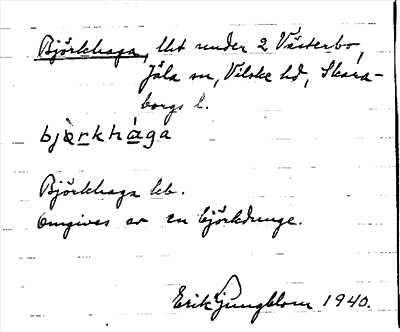 Björkhaga, lht under 2 Västerbo,
Jäla sn, Vilske hd, Skara-
borgs l.
bjæ̀rkhàga
Björkhaga kb.
Omgives av en björkdunge.
Erik Ljungblom 1940.